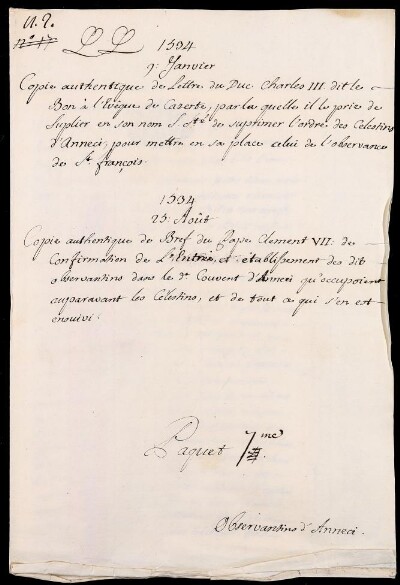 n. 7.
LL 1534
9: Janvier
Copie authentique de Lettre du Duc Charles III dit le
Bon à l'Evêque de Caserte, par la quelles il le prie de
Suplier en son nom S. Sté de suprimer l'ordre des Celestins
d'Anneci, pour mettre en sa place celui de l'observance
de St françois.
1534
25: Août
Copie authentique de Bref du Pape Clement VII: de
Confirmation de L'Entrée, et établissement des dit
observantins dans le dt Couvent d'Anneci qu'occupoient
auparavant les Celestins, et de tout ce qui s'en est
ensuivi.
Paquet 7me
Observantins d'Anneci.